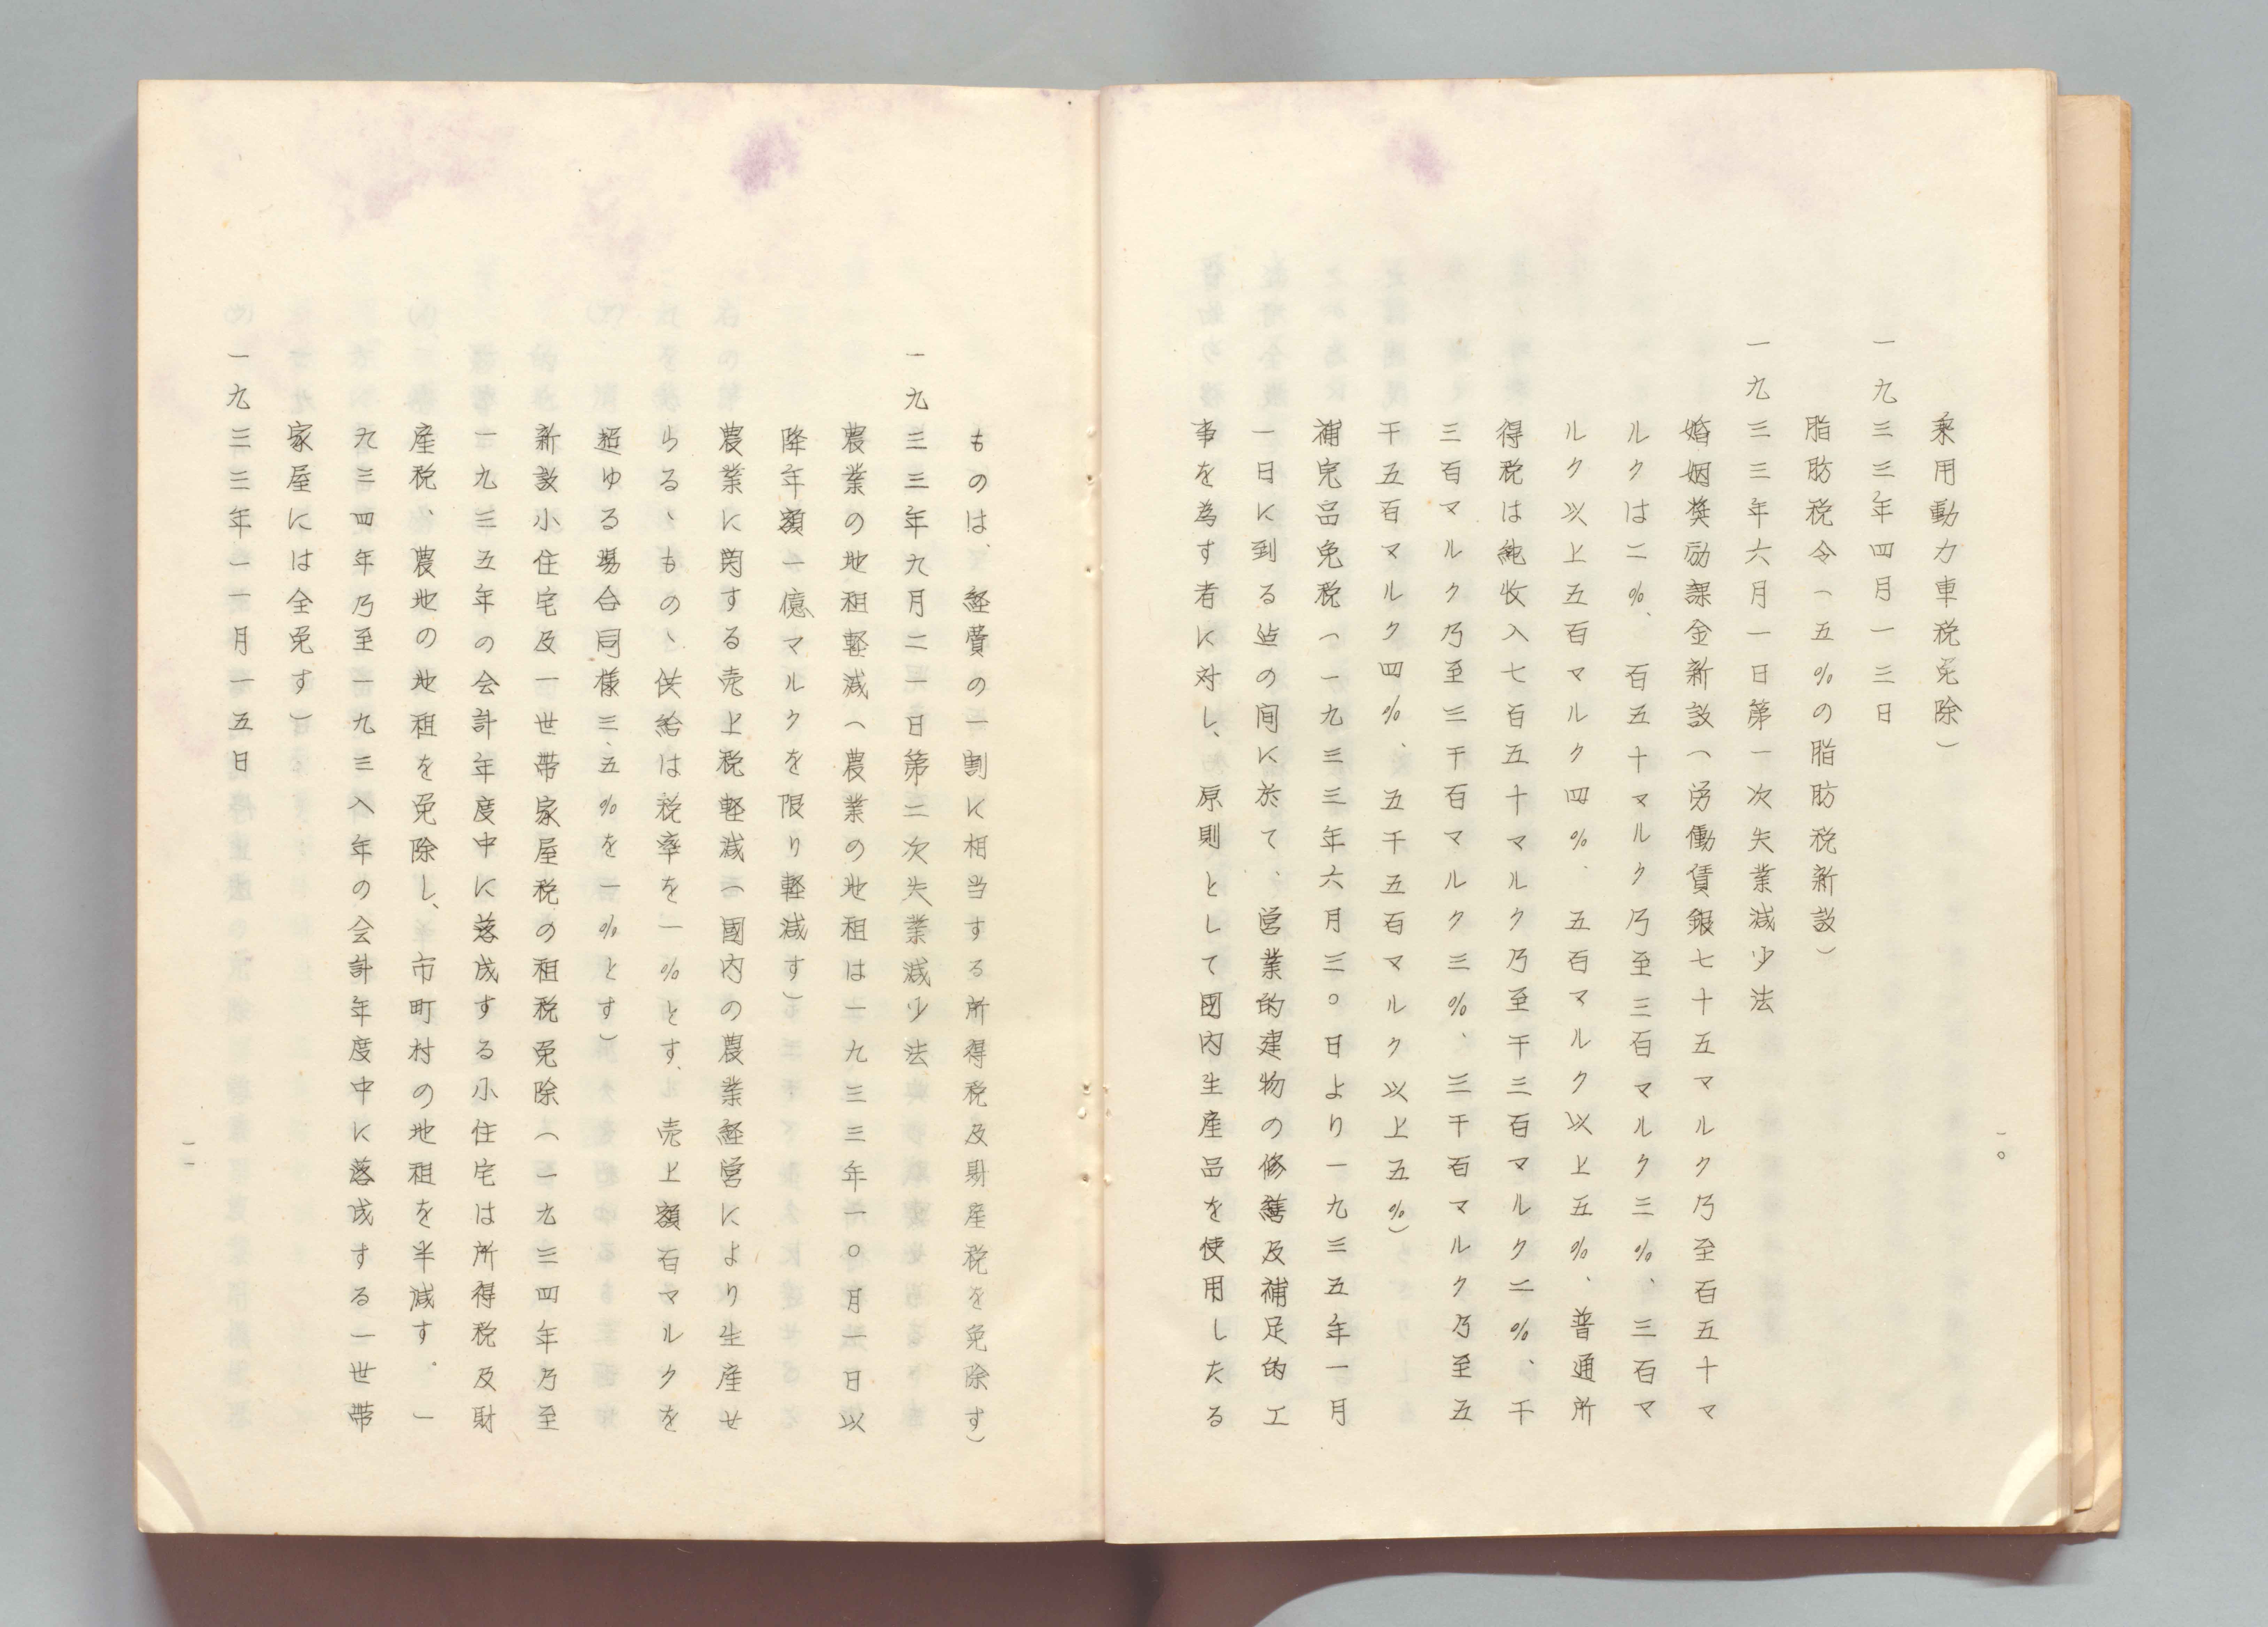 一〇
乗用動力車税免除)
一九三三年四月一三日
脂肪税令(五%の脂肪税新設)
一九三三年六月一日第一次失業減少法
婚姻奨励課金新設(労働賃銀七十五マルク乃至百五十マ
ルクは二%、百五十マルク乃至三百マルク三%、三百マ
ルク以上五百マルク四%、五百マルク以上五%、普通所
得税は純收入七百五十マルク乃至千三百マルク二%、千
三百マルク乃至三千百マルク三%、三千百マルク乃至五
千五百マルク四%、五千五百マルク以上五%)
補完品免税(一九三三年六月三〇日より一九三五年一月
一日に到る迠の间に於て、営業的建物の修繕及補足的工
事を為す者に対し、原則として国内生産品を使用したる
ものは、経費の一割に相当する所得税及財産税を免除す)
一九三三年九月二一日第二次失業減少法
農業の地租軽減(農業の地租は一九三三年一〇月一日以
降年額一億マルクを限り軽減す)
農業に関する売上税軽減(國内の農業経営により生産せ
らるゝもの、供給は税率を一%とす、売上額百マルクを
超ゆる場合同様三、五%を一%とす)
新設小住宅及一世帯家屋税の租税免除(一九三四年乃至
一九三五年の会計年度中に落成する小住宅は所得税及財
産税、農地の地租を免除し、市町村の地租を半減す。一
九三四年乃至一九三八年の会計年度中に落成する一世帯
家屋には全免す)
一九三三年一一月一五日
一一